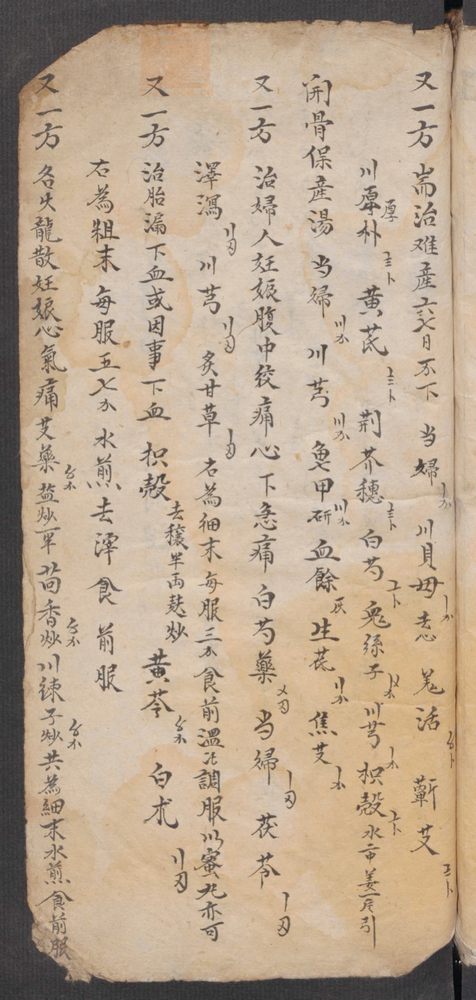 又一方 耑治难産六七日不下 当婦 川貝母去心 羌活 蘄艾
川厚朴 厚 黄芪 荆芥穗 白芍 兔絲子 川芎 枳殻 水 姜 引
開骨保産湯 当婦 川芎 龟甲研 血餘 生芪 焦艾
又一方 治婦人妊娠腹中绞痛心下急痛 白芍藥 当婦 茯苓
澤瀉 川芎 炙甘草 右為细末每服三 食前溫 調服以蜜丸亦可
又一方 治胎漏下血或因事下血 枳殻 去穰半两麸炒 黄芩 白朮
右為粗末 每服五七 水煎去滓食前服
又一方 名火龍散妊娠心氣痛 艾藥盐炒一半 茴香炒 川楝子炒 共為細末水煎食前服